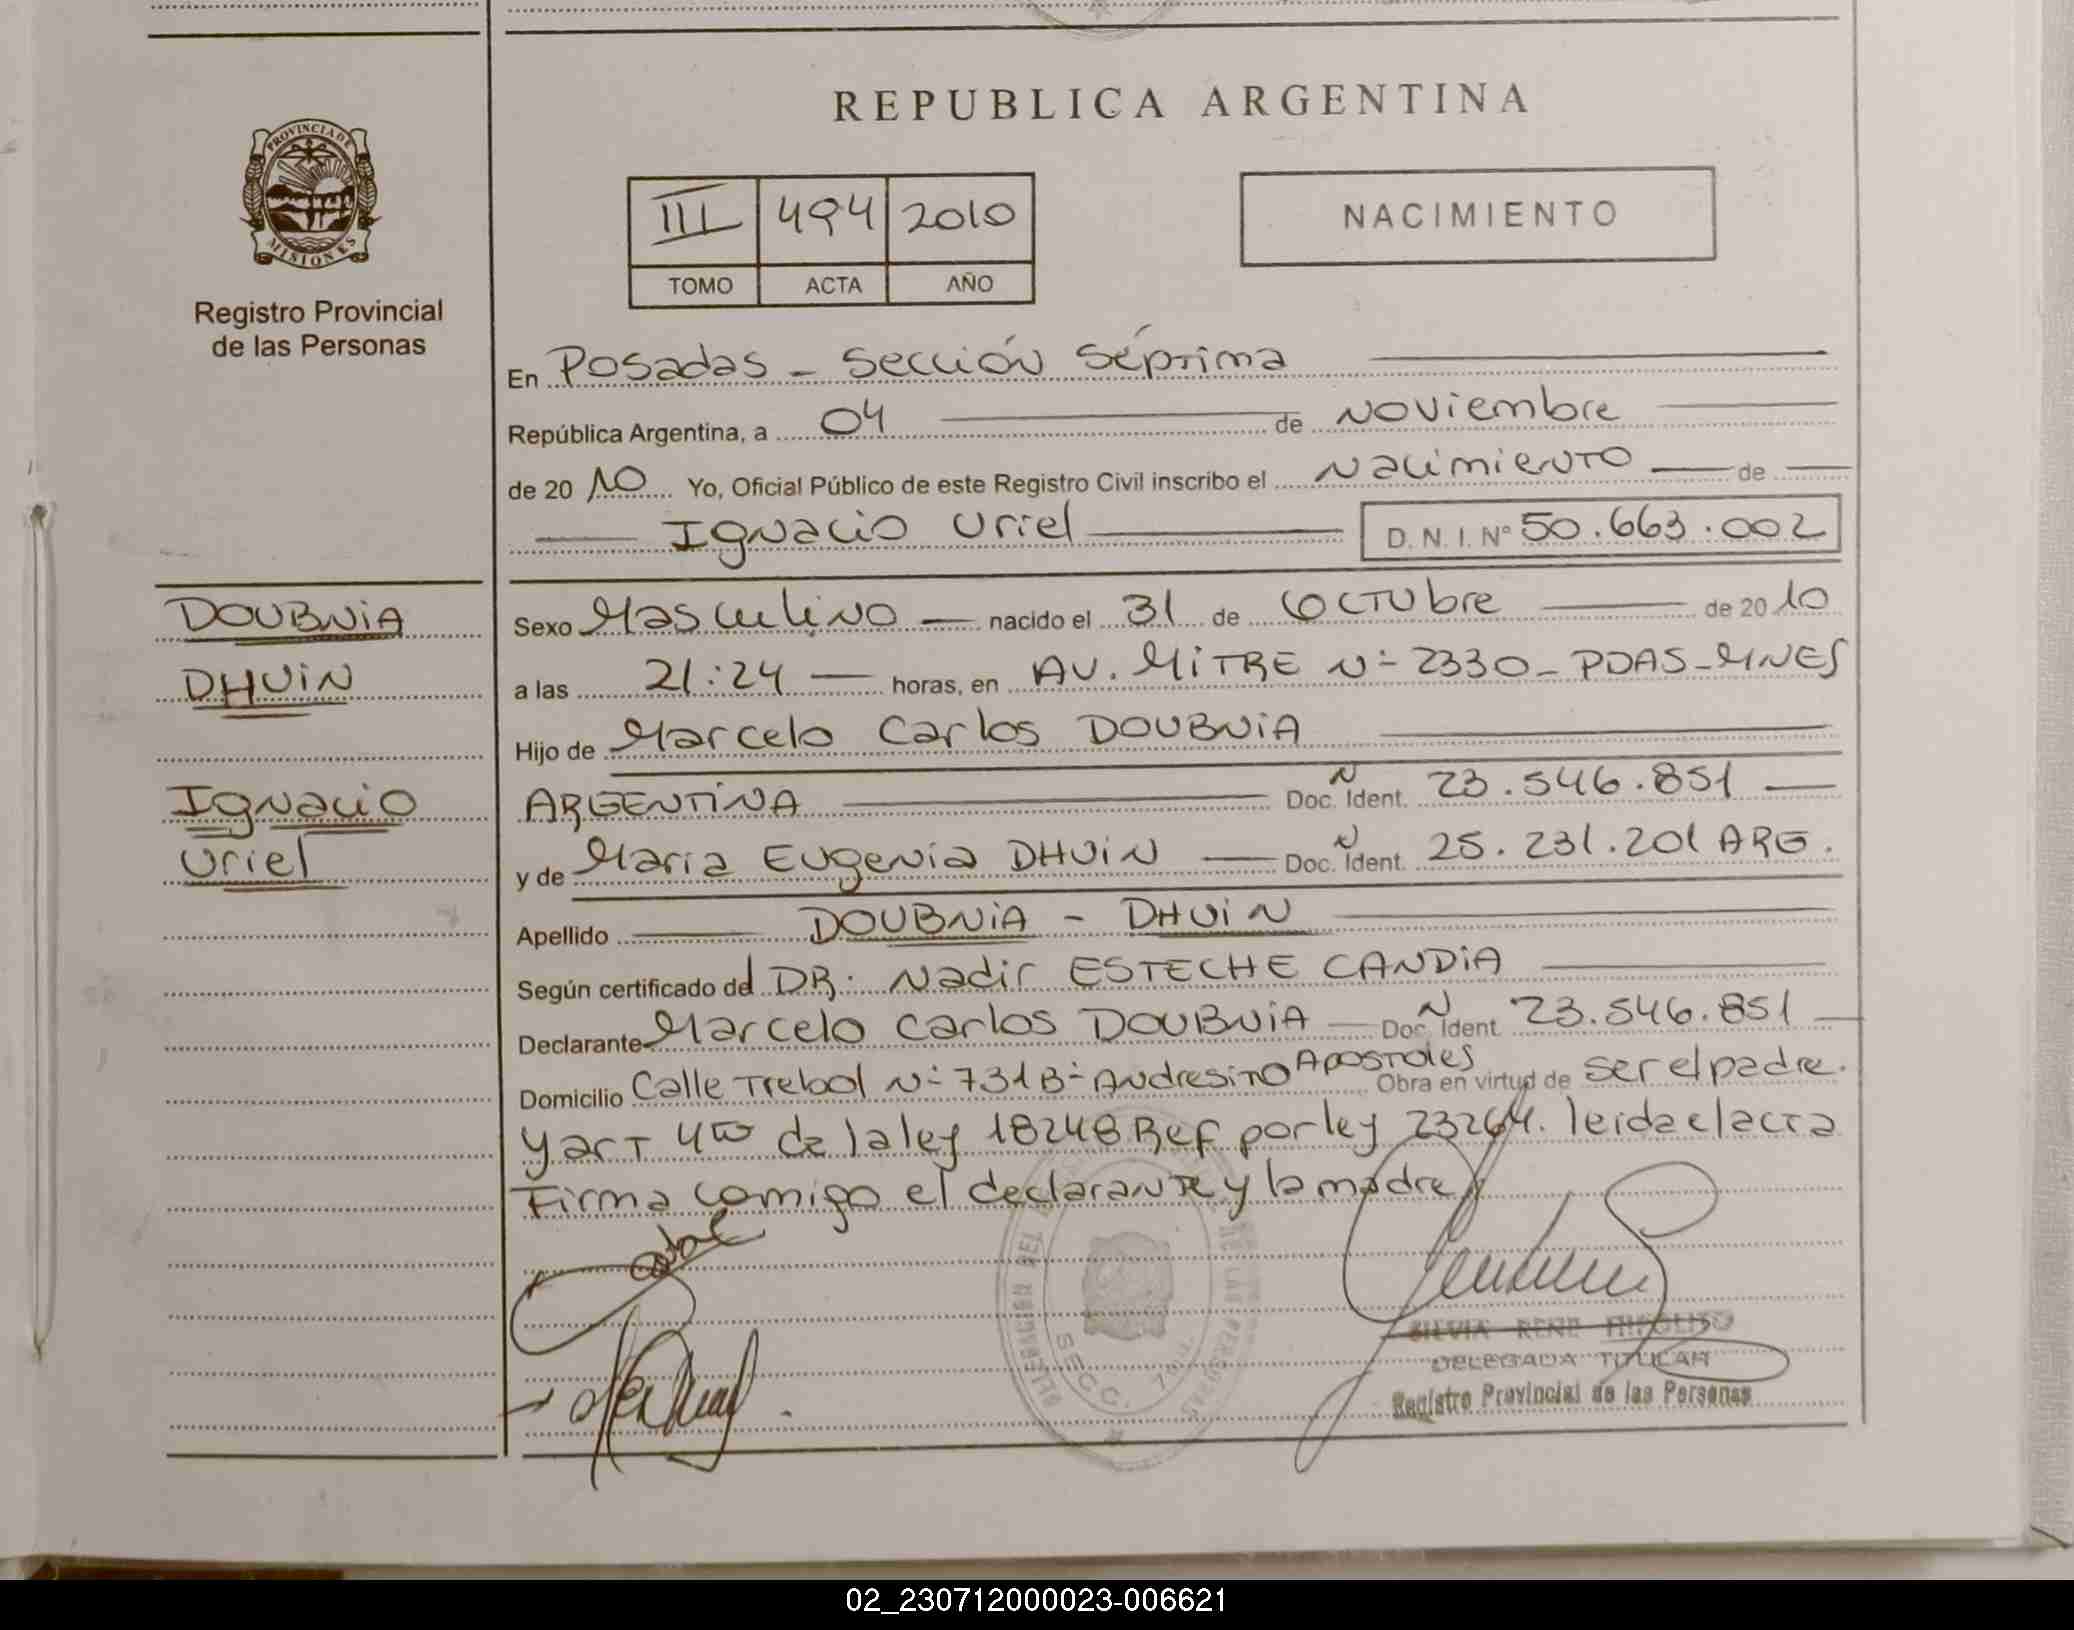 REPUBLICA ARGENTINA
PROVINCIA DE MISIONES
Registro Provincial
de las Personas
III 494 2010
TOMO ACTA AÑO
NACIMIENTO
En Posadas - Sección Séptima
República Argentina, a 04 de Noviembre
de 20 10 Yo, Oficial Público de este Registro Civil inscribo el Nacimiento de
Ignacio Uriel D. N. I. Nº 50.663.002
DOUBNiA
DHUiN
Ignacio
Uriel
Sexo Masculino nacido el 31 de Octubre de 20 10
a las 21:24 horas, en AV. MiTRE Nº 2330 - PDAS - MNES
Hijo de Marcelo Carlos DOUBNiA
ARGENTiNA Doc. Ident. N 23.546.851
y de Maria Eugenia DHUiN Doc. Ident. N 25.231.201 ARG.
Apellido DOUBNiA - DHUiN
Según certificado del DR. Nadir ESTECHE CANDiA
Declarante Marcelo Carlos DOUBNiA Doc. Ident N 23.546.851
Domicilio Calle Trebol Nº 731 Bº Andresito Apostoles Obra en virtud de ser el padre.
y art 4to de la ley 18248 Ref por ley 23264. leida el acta
Firma comigo el declarante y la madre
SECC. 7ma
SILVIA RENE
DELEGADA TITULAR
Registro Provincial de las Personas
02_230712000023-006621